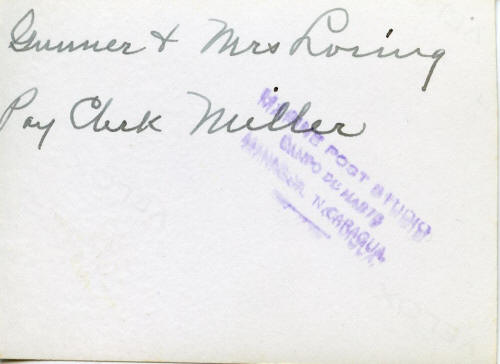 Gunner & Mrs Loring
Pay Clerk Miller
MARINE POST STUDIO
CAMPO DE MARTE
MANAGUA, NICARAGUA.